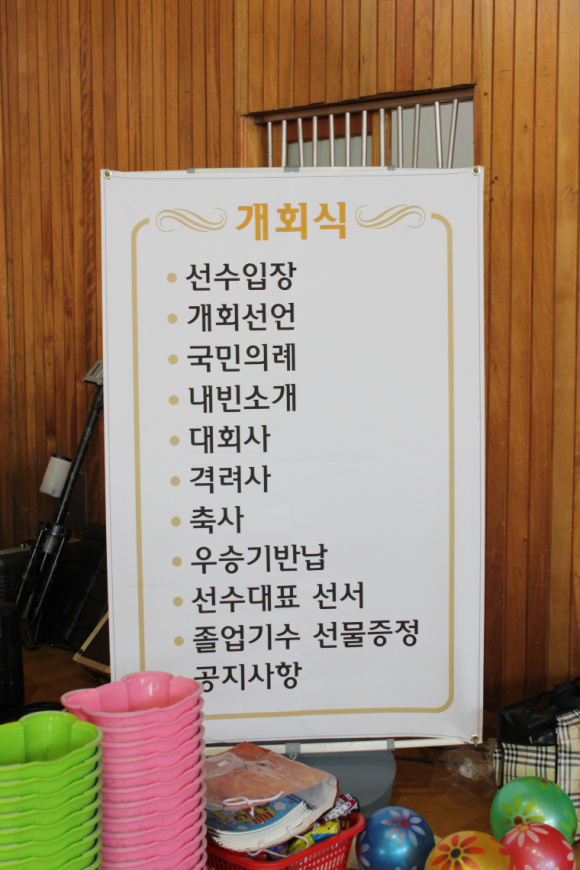 개회식
• 선수입장
• 개회선언
• 국민의례
• 내빈소개
• 대회사
• 격려사
• 축사
• 우승기반납
• 선수대표 선서
• 졸업기수 선물증정
공지사항